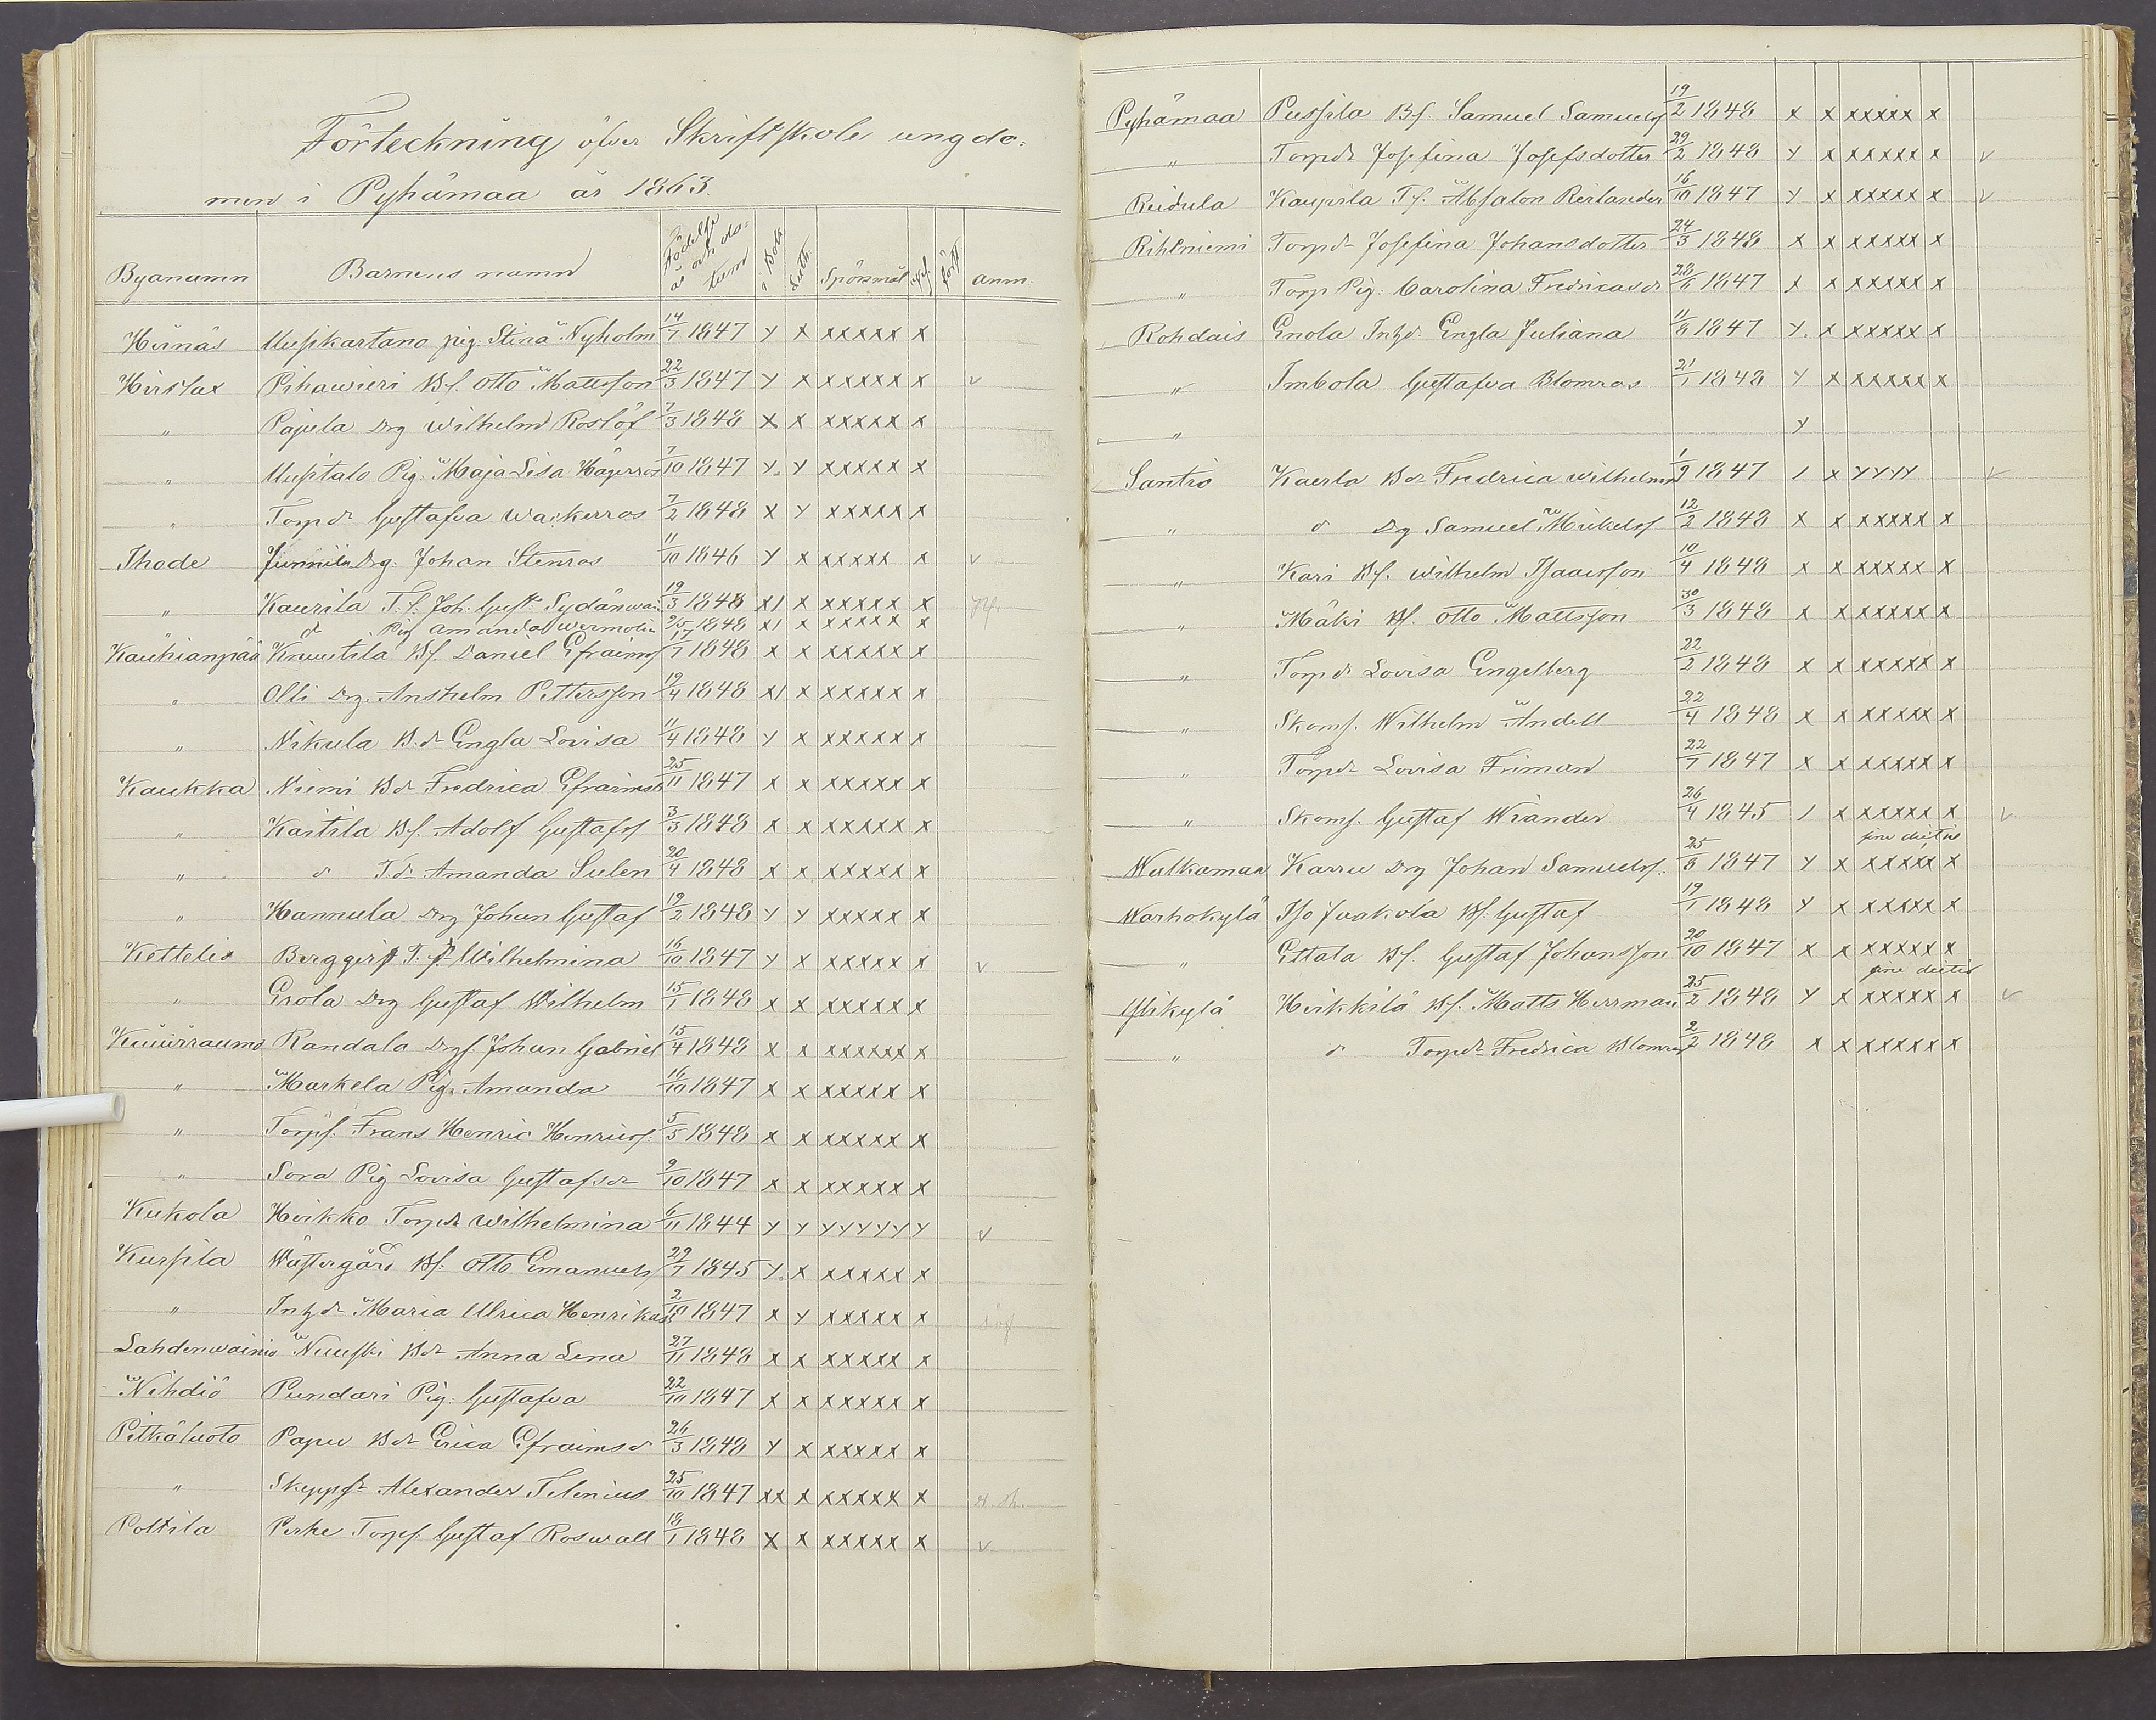 Förteckning öfver Skriftskole ungdo-
men i Pyhämaa år 1863.
Byanamn Barnens namn Födelse år och da-tum i Bok Luth. Spörsmål förf. anm.
Heinäs Uusikartano pig. Stina Nyholm 14/7 1847 y x xxxxx x
Hirslax Pihawieri Bs. Otto Mattsson 22/3 1847 y x xxxxx x v
" Pajula Drg Wilhelm Roslöf 7/3 1848 x x xxxxx x
" Uusitalo Pig. Maja Lisa Hägerros 7/10 1847 y. y xxxxx x
" Torpdr Gustafva Wackerros 7/2 1848 x y xxxxx x
Ihode Junnila Drg. Johan Stenros 11/10 1846 y x xxxxx x v
" Kaurila T.s. Joh. Gust. Sydänwai 19/3 1848 x1 x xxxxx x
d Pig Amanda Wermolin 2/5 1848 x1 x xxxxx x
Kauhianpää Knuutila Bs. Daniel Efraims 17/1 1848 x x xxxxx x
" Olli Drg. Anshelm Pettersson 19/4 1848 x1 x xxxxx x
" Nikula B.dr Engla Lovisa 11/4 1848 y x xxxxx x
Kaukka Niemi Bdr Fredrica Efraimsd 25/11 1847 x x xxxxx x
" Kaitila Bs. Adolf Gustafss 3/3 1848 x x xxxxx x
" d T.dr Amanda Sulen 20/4 1848 x x xxxxx x
" Hannula Drg Johan Gustaf 19/2 1848 y y xxxxx x
Kettelix Berggerst T. Wilhelmina 16/10 1847 y x xxxxx x v
" Erola Drg Gustaf Wilhelm 15/1 1848 x x xxxxx x
Randala Drgs. Johan Gabriel 15/4 1848 x x xxxxx x
" Markela Pig. Amanda 16/10 1847 x x xxxxx x
" Torps. Frans Henric Henricss. 5/5 1848 x x xxxxx x
" Sora Pig Lovisa Gustafsdr 9/10 1847 x x xxxxx x
Kukola Heikko Torpdr Wilhelmina 6/11 1844 y y yyyyy y v
Kursila Wästergård Bs. Otto Emanuels 29/7 1845 y. x xxxxx x
" Inhdr Maria Ulrica Henrikasd 2/10 1847 x y xxxxx x döf
Lahdenwainio Nuuski Bdr Anna Lena 27/11 1848 x x xxxxx x
Nihdiö Pundari Pig. Gustafva 22/10 1847 x x xxxxx x
Pitkäluoto Papu Bdr Erica Efraimsdr 26/3 1848 y x xxxxx x
" Skepps Alexander Telenius 25/10 1847 xx x xxxxx x
Polttila Perke Torps. Gustaf Roswall 18/1 1848 x x xxxxx x v
Pyhämaa Pussila Bs. Samuel Samuelss 19/2 1848 x x xxxxx x
" Torpdr Josefina Josefsdotter 29/2 1848 y x xxxxx x v
Reidula Kaupila Ts. Absalon Reilander 16/10 1847 y x xxxxx x v
Rihtniemi Torpdr Josefina Johansdotter 24/3 1848 x x xxxxx x
" Torp Pig. Carolina Fredricasdr 28/6 1847 x x xxxxx x
Rohdais Enola Inhdr Engla Juliana 11/8 1847 y. x xxxxx x
" Imbola Gustafva Blomros 21/1 1848 y x xxxxx x
" y
Santio Kaerla Bdr Fredrica Wilhelmin 1/9 1847 1 x yyyy v
" d Drg Samuel Mickelss 12/2 1848 x x xxxxx x
" Kari Bs. Wilhelm Isaacsson 10/4 1848 x x xxxxx x
" Mäki Bs. Otto Mattsson 30/3 1848 x x xxxxx x
" Torpdr Lovisa Engelberg 22/2 1848 x x xxxxx x
" Skoms. Wilhelm Andell 22/4 1848 x x xxxxx x
" Torpdr Lovisa Friman 22/7 1847 x x xxxxx x
" Skoms. Gustaf Wiander 26/4 1845 1 x xxxxx x v
sine dictis
Walkamaa Karru Drg Johan Samuelss. 25/8 1847 y x xxxxx x
Warhokylä Iso Juakola Bs. Gustaf 19/1 1848 y x xxxxx x
" Ettala Bs. Gustaf Johansson 20/10 1847 x x xxxxx x
sine dictis
Ylikylä Heikkilä Bs. Matts Herrman 25/2 1848 y x xxxxx x v
" d Torpdr Fredrica Blomros 2/2 1848 x x xxxxx x